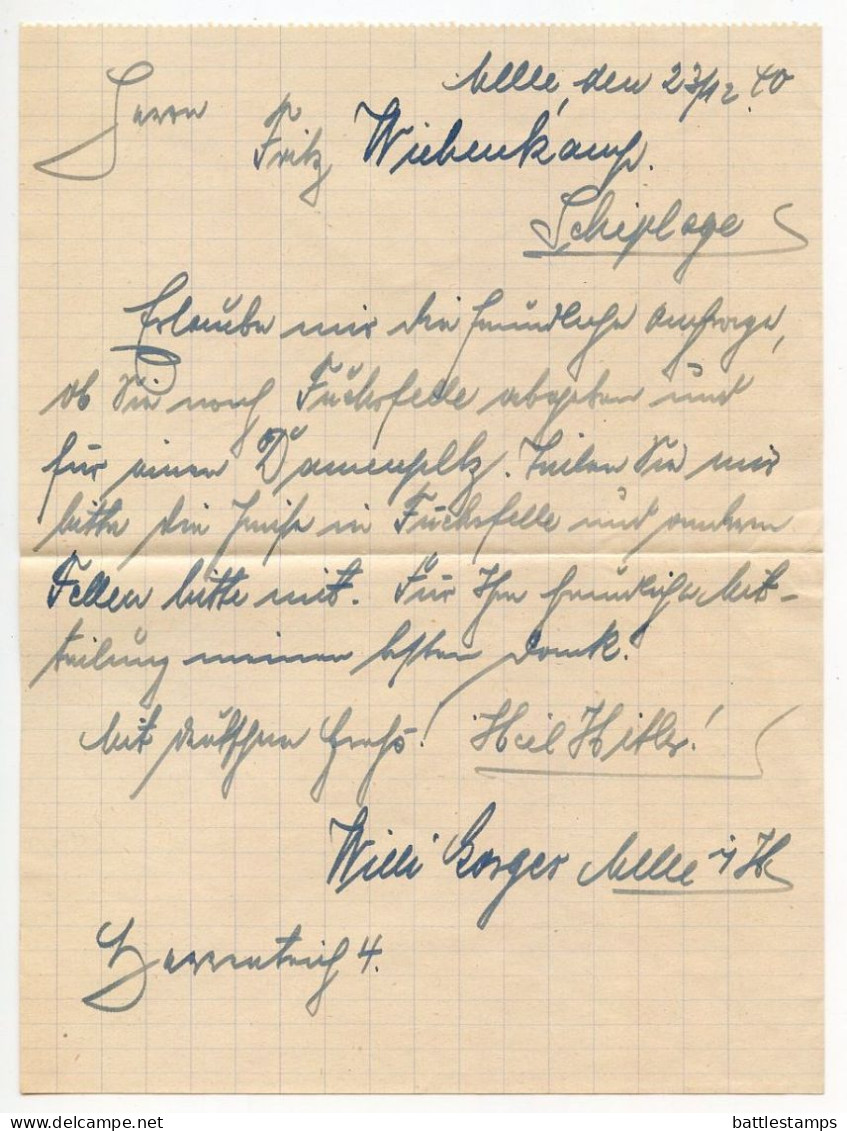 Melle, den 23/12 40
Herrn
Fritz Wiebenkamp.
Schiplage
Erlaube mir die freundliche Anfrage,
ob Sie noch Fuchsfelle abgeben und
für einen Damenpeltz. Teilen Sie mir
bitte die Preise in Fuchsfelle und anderen
Fellen bitte mit. Für Ihre freundliche Mit-
teilung meinen besten Dank!
Mit deutschem Gruß! Heil Hitler!
Willi Gorges Melle i/H
4.
battlestamps